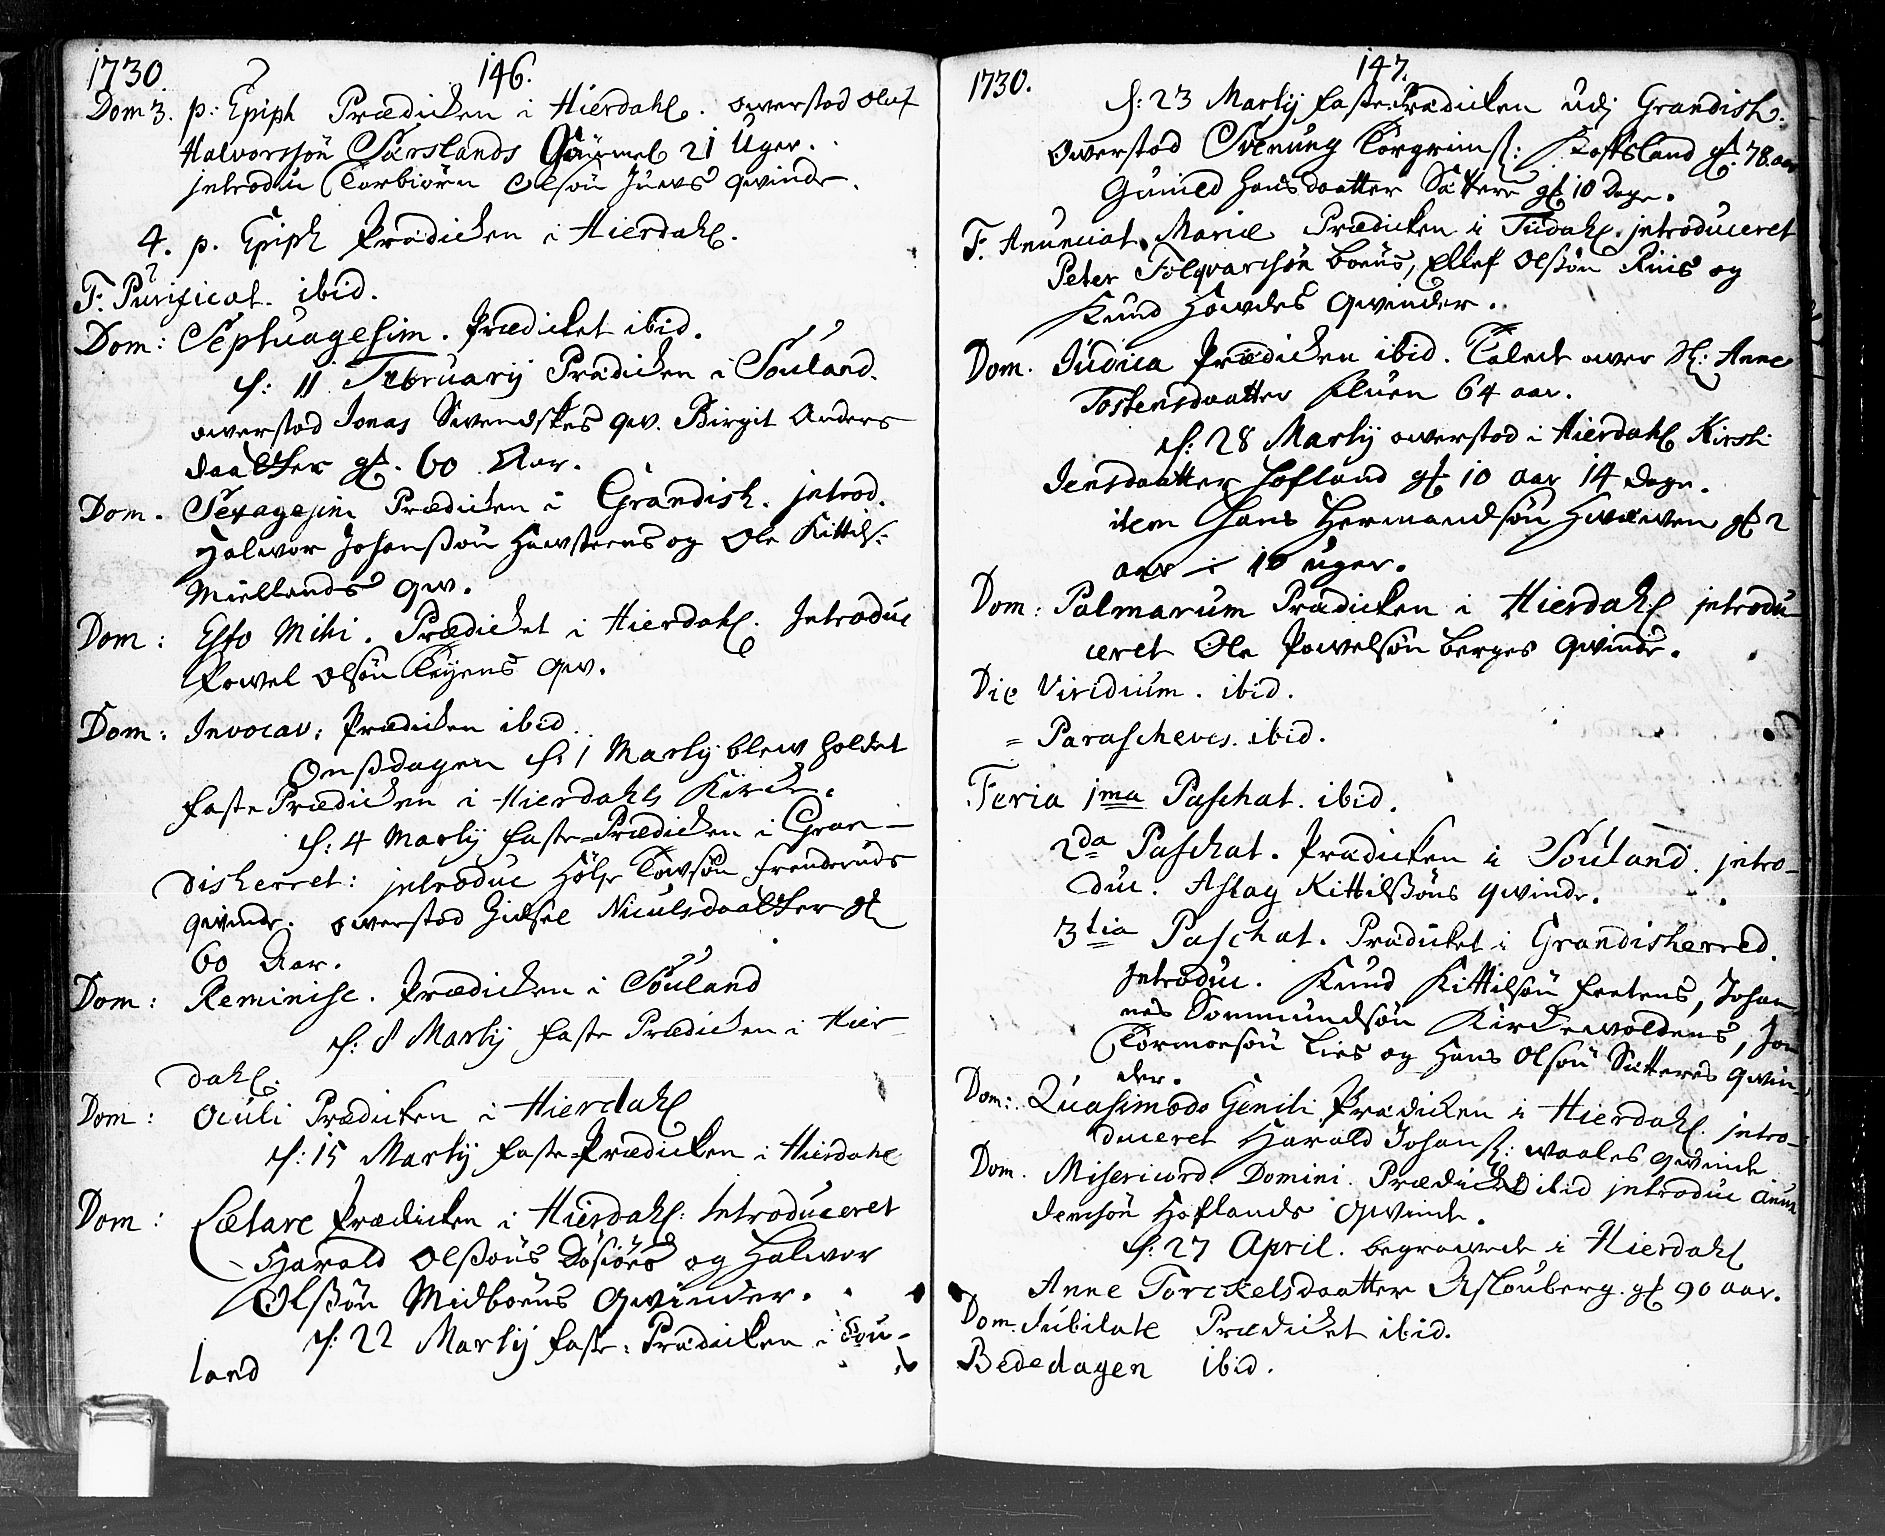 1730. 146.
Dom 3. p: Epiph Prædicken i Hierdahl. owerstod Oluf
Halvorssøn Særslands Gunnel 21 Uger.
introdu Torbiörn Olsøn Juvs qvinde.
4. p. Epiph Prædicken i Hierdahl.
F. Purificat. ibid.
Dom: Septuagesim. Prædicket ibid.
d: 11 Februarij Prædicken i Souland.
owerstod Jonas Swendskes qv. Birgit Anders
daatter gl. 60 Aar.
Dom. Sexagesim Prædicken i Grandish. introd.
Halwor Johanssøn Hawsteens og Ole Kittils:
Miellands qw.
Dom: Esto Mihi. Prædicket i Hierdahl. Introduc
Powel Olsøn qw.
Dom: Invocav: Prædicken ibid.
Onssdagen d: 1 Martij blew holdet
faste Prædicken i Hierdahls Kirche.
d: 4 Martij faste-Prædicken i Gran-
disherret: introduc Hölje Towsøn Frenderuds
qvinde. owerstod Gidsel Niculsdaatter gl
60 Aar.
Dom: Reminisc. Prædicken i Souland
d: 8 Martij faste Prædicken i Hier
dahl.
Dom: Oculi Prædicken i Hierdahl
d: 15 Martij faste-Prædicken i Hierdahl
Dom: Lætare Prædicken i Hierdahl: Introduceret
Harald Olssøns og Halwor
Olssøn Midboens Qwinder.
d: 22 Martij faste: Prædicken i Sou-
land
1730. 147.
d: 23 Martij faste-Prædicken udj Grandish.
Owerstod Svenung Torgrims: Kossland gl: 78. aar
Gunild Hansdaatter Sættere gl 10 Dage.
F. Anunciat. Mariæ Prædicken i Tudahl. introduceret
Peter Folqvarsøn Boens, Ellef Olssøn Riiis og
Knud Howdes Qwinder.
Dom. Judica Prædicken ibid. Talede over Sl: Anne
Tostensdaatter Fluen 64 aar.
d: 28 Martij owerstod i Hierdahl Kirsti
Jensdaatter Hofland gl 10 aar 14 Dage.
item Hans Hermandsøn Hwæwen gl 2
aar i 10 uger.
Dom: Palmarum Prædicken i Hierdahl introdu-
ceret Ole Powelsøn Berges Qwinde.
Die Viridium. ibid.
= Parascheves. ibid.
Feria 1ma Paschat. ibid.
2da Paschat. Prædicken i Souland. intro-
duc. Aslag Kittilssøns qwinde.
3tia Paschat. Prædicket i Grandisherred.
Introduc. Knud Kittilsøn Fretens, Johan
nes Sommundsøn Kirkewoldens, Jon
Tormoesøn Lies og Hans Olsøn Sætteres qwin-
der.
Dom: Quasimodo Geniti Prædicken i Hierdahl. intro-
duceret Harald Johans: waales qwinde
Dom. Misericord. Domini. Prædicket ibid introduc
densøn Hoflands Qwinde.
d: 27 April. begrawede i Hierdahl
Anne Torckelsdaatter Aslouberg. gl 90 aar.
Dom. Jubilate Prædicket ibid.
Bededagen ibid.